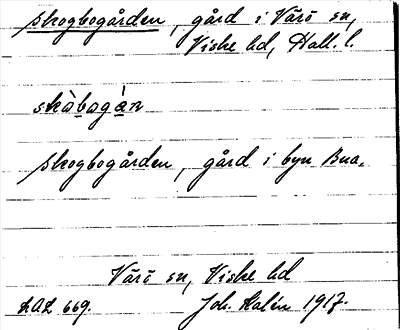 Skogbogården, gård i Värö sn,
Viske hd, Hall. l.
skàbagán
Skogbogården, gård i byn Bua.
Värö sn, Viske hd
LAL 669. Joh. Kalén 1917.